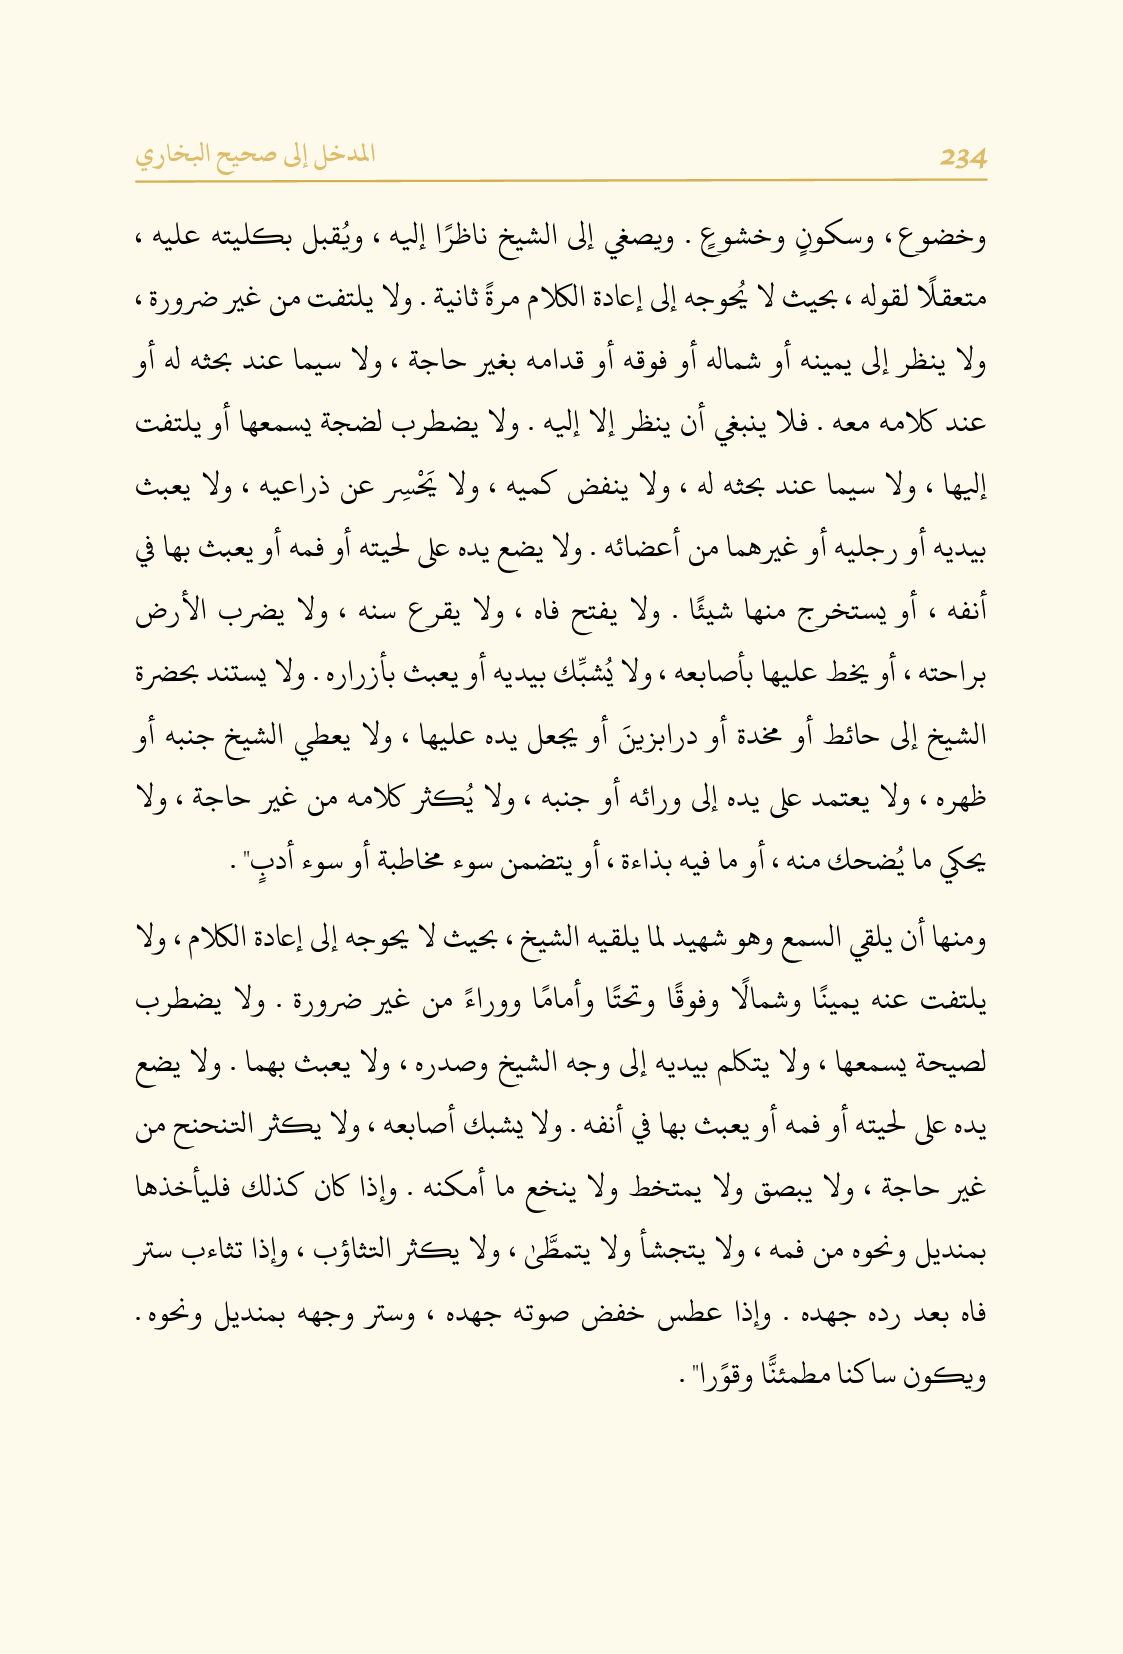 234
المدخل إلى صحيح البخاري
وخضوع، وسكونٍ وخشوعٍ . ويصغي إلى الشيخ ناظرًا إليه ، ويُقبل بكليته عليه ،
متعقلًا لقوله ، بحيث لا يُحوجه إلى إعادة الكلام مرةً ثانية . ولا يلتفت من غير ضرورة ،
ولا ينظر إلى يمينه أو شماله أو فوقه أو قدامه بغير حاجة ، ولا سيما عند بحثه له أو
عند كلامه معه . فلا ينبغي أن ينظر إلا إليه . ولا يضطرب لضجة يسمعها أو يلتفت
إليها ، ولا سيما عند بحثه له ، ولا ينفض كميه ، ولا يَحْسِر عن ذراعيه ، ولا يعبث
بيديه أو رجليه أو غيرهما من أعضائه . ولا يضع يده على لحيته أو فمه أو يعبث بها في
أنفه ، أو يستخرج منها شيئًا . ولا يفتح فاه ، ولا يقرع سنه ، ولا يضرب الأرض
براحته ، أو يخط عليها بأصابعه ، ولا يُشبِّك بيديه أو يعبث بأزراره . ولا يستند بحضرة
الشيخ إلى حائط أو مخدة أو درابزينَ أو يجعل يده عليها ، ولا يعطي الشيخ جنبه أو
ظهره ، ولا يعتمد على يده إلى ورائه أو جنبه ، ولا يُكثر كلامه من غير حاجة ، ولا
يحكي ما يُضحك منه ، أو ما فيه بذاءة ، أو يتضمن سوء مخاطبة أو سوء أدبٍ" .
ومنها أن يلقي السمع وهو شهيد لما يلقيه الشيخ ، بحيث لا يحوجه إلى إعادة الكلام ، ولا
يلتفت عنه يمينًا وشمالًا وفوقًا وتحتًا وأمامًا ووراءً من غير ضرورة . ولا يضطرب
لصيحة يسمعها ، ولا يتكلم بيديه إلى وجه الشيخ وصدره ، ولا يعبث بهما . ولا يضع
يده على لحيته أو فمه أو يعبث بها في أنفه . ولا يشبك أصابعه ، ولا يكثر التنحنح من
غير حاجة ، ولا يبصق ولا يمتخط ولا ينخع ما أمكنه . وإذا كان كذلك فليأخذها
بمنديل ونحوه من فمه ، ولا يتجشأ ولا يتمطَّىٰ ، ولا يكثر التثاؤب ، وإذا تثاءب ستر
فاه بعد رده جهده . وإذا عطس خفض صوته جهده ، وستر وجهه بمنديل ونحوه .
ويكون ساكنا مطمئنًّا وقوًرا" .